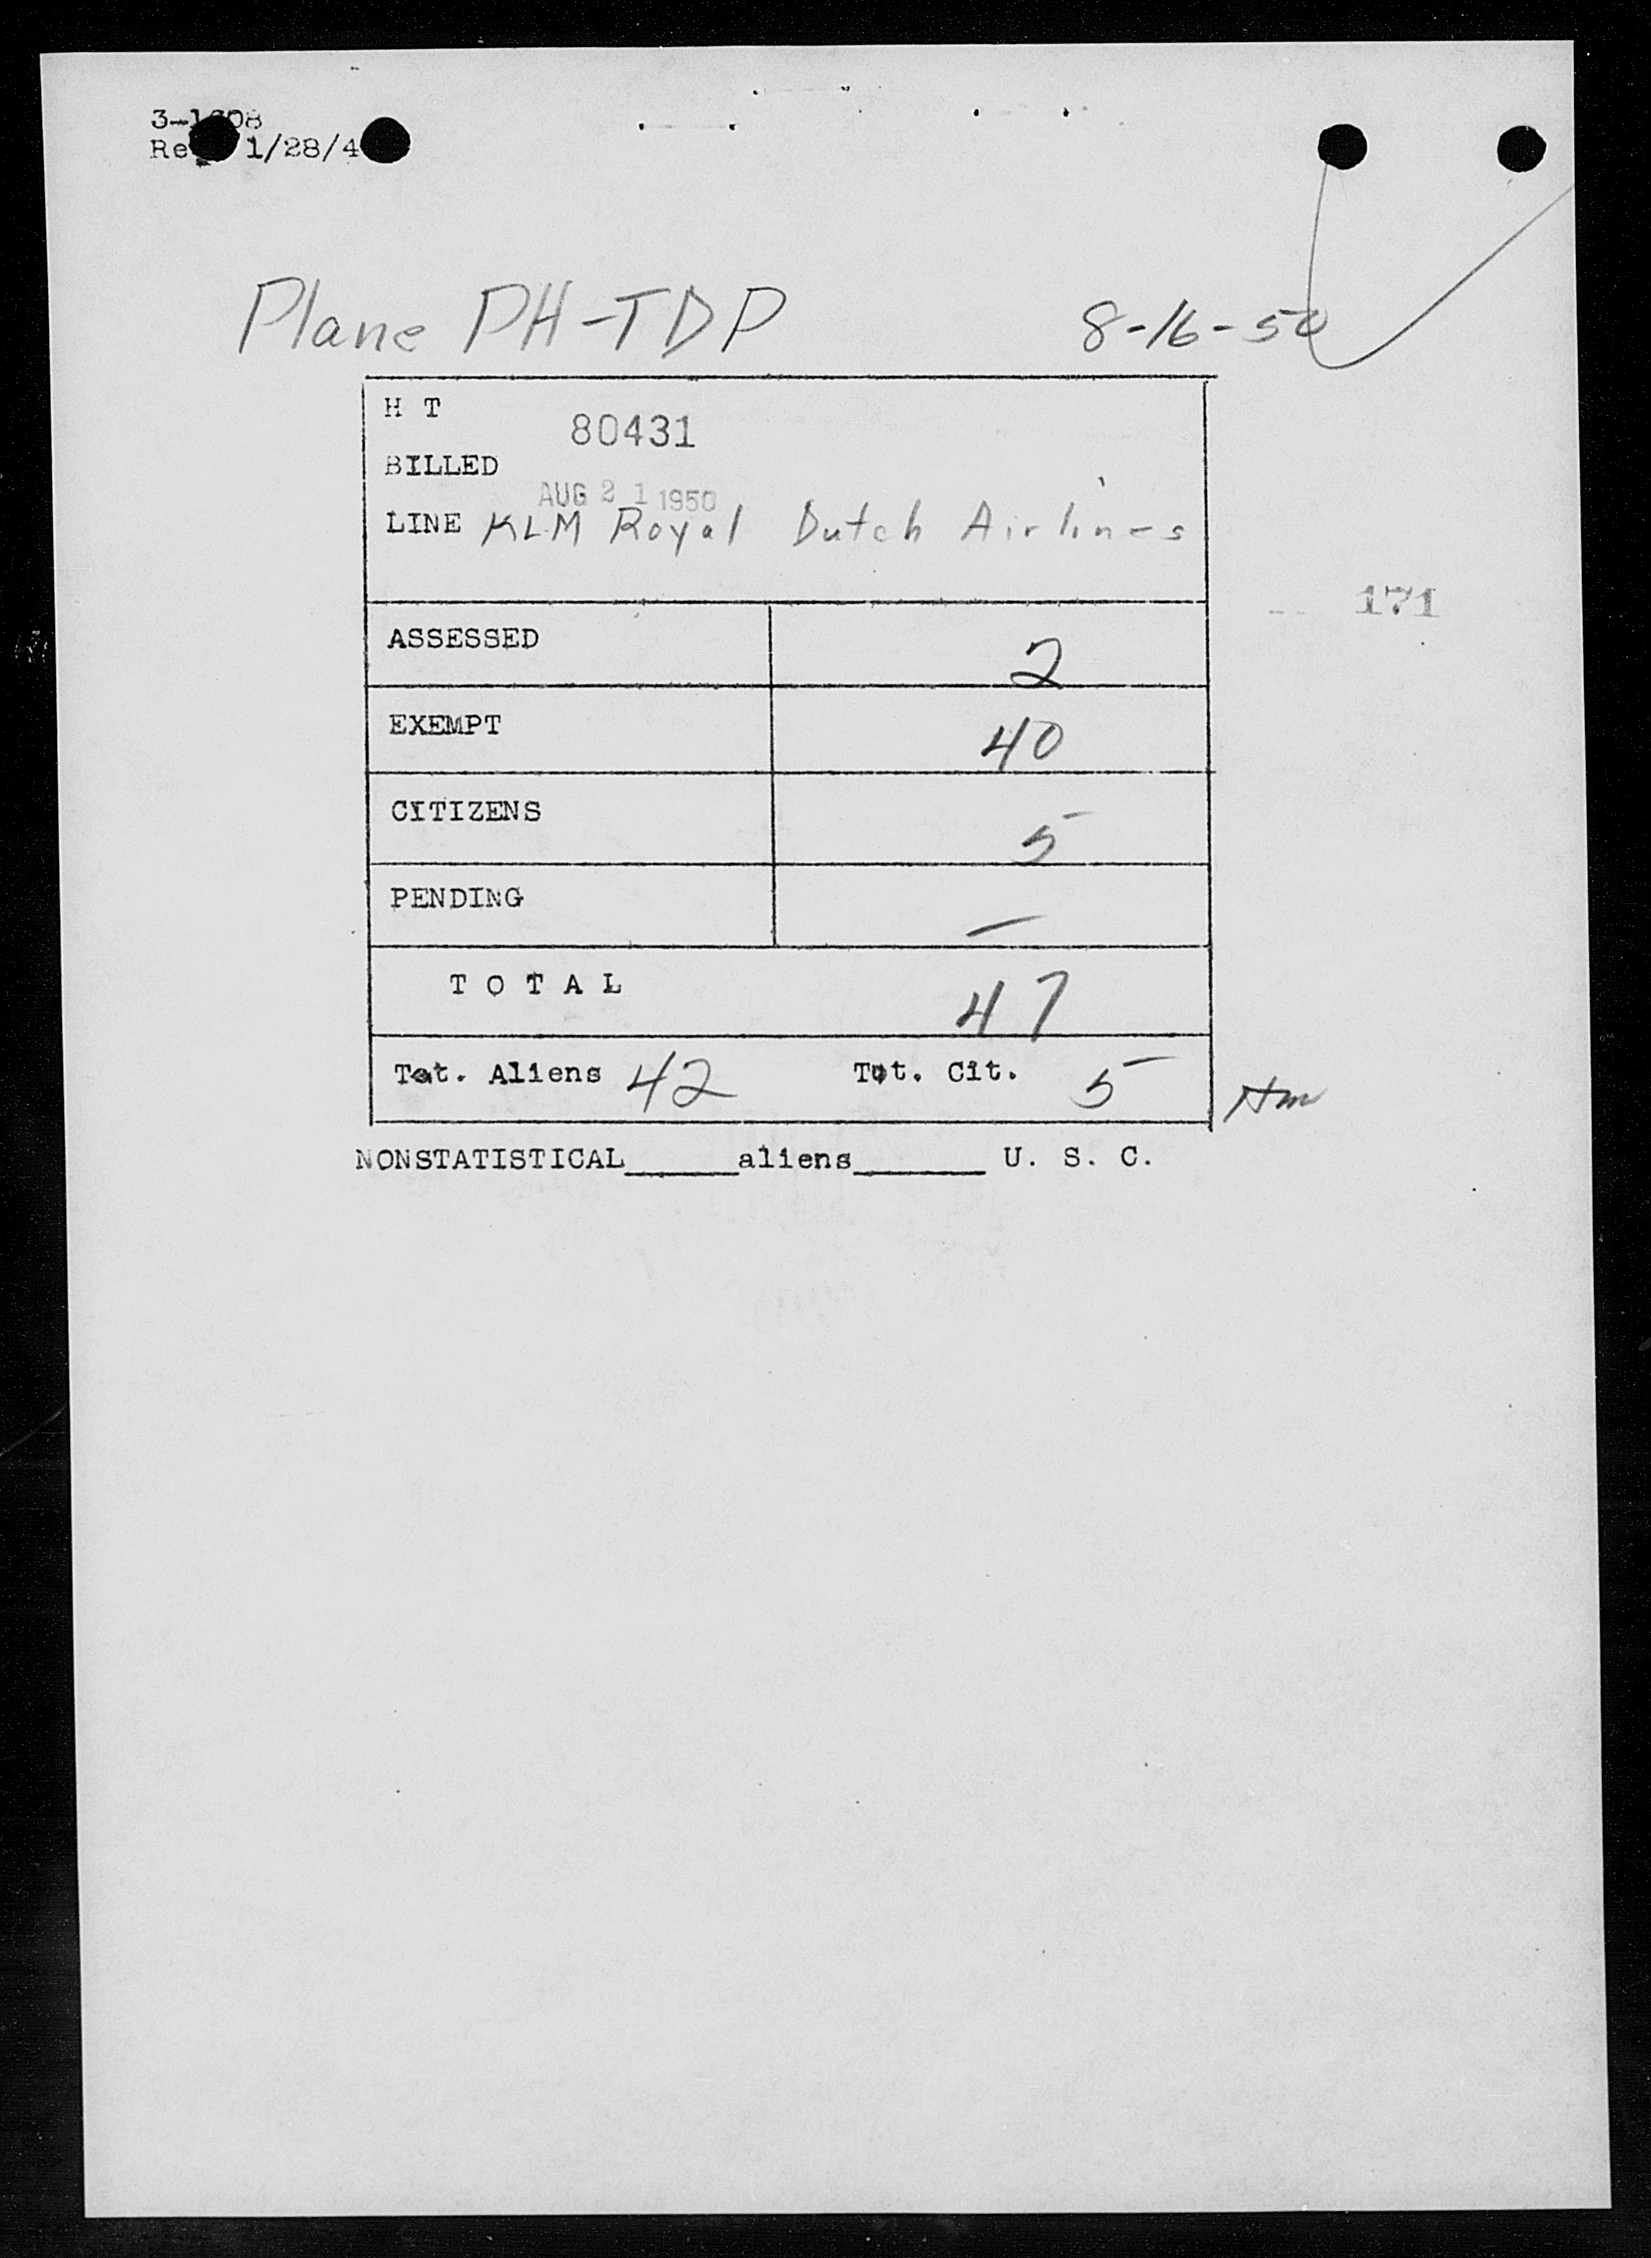 1/28/4
Plane PH-TDP 8-16-50
H T
80431
BILLED
AUG 21 1950
LINE KLM Royal Dutch Airlines
171
ASSESSED 2
EXEMPT 40
CITIZENS 5
PENDING —
T O T A L 47
Tot. Aliens 42 Tot. Cit. 5
NONSTATISTICAL______aliens_______ U. S. C.